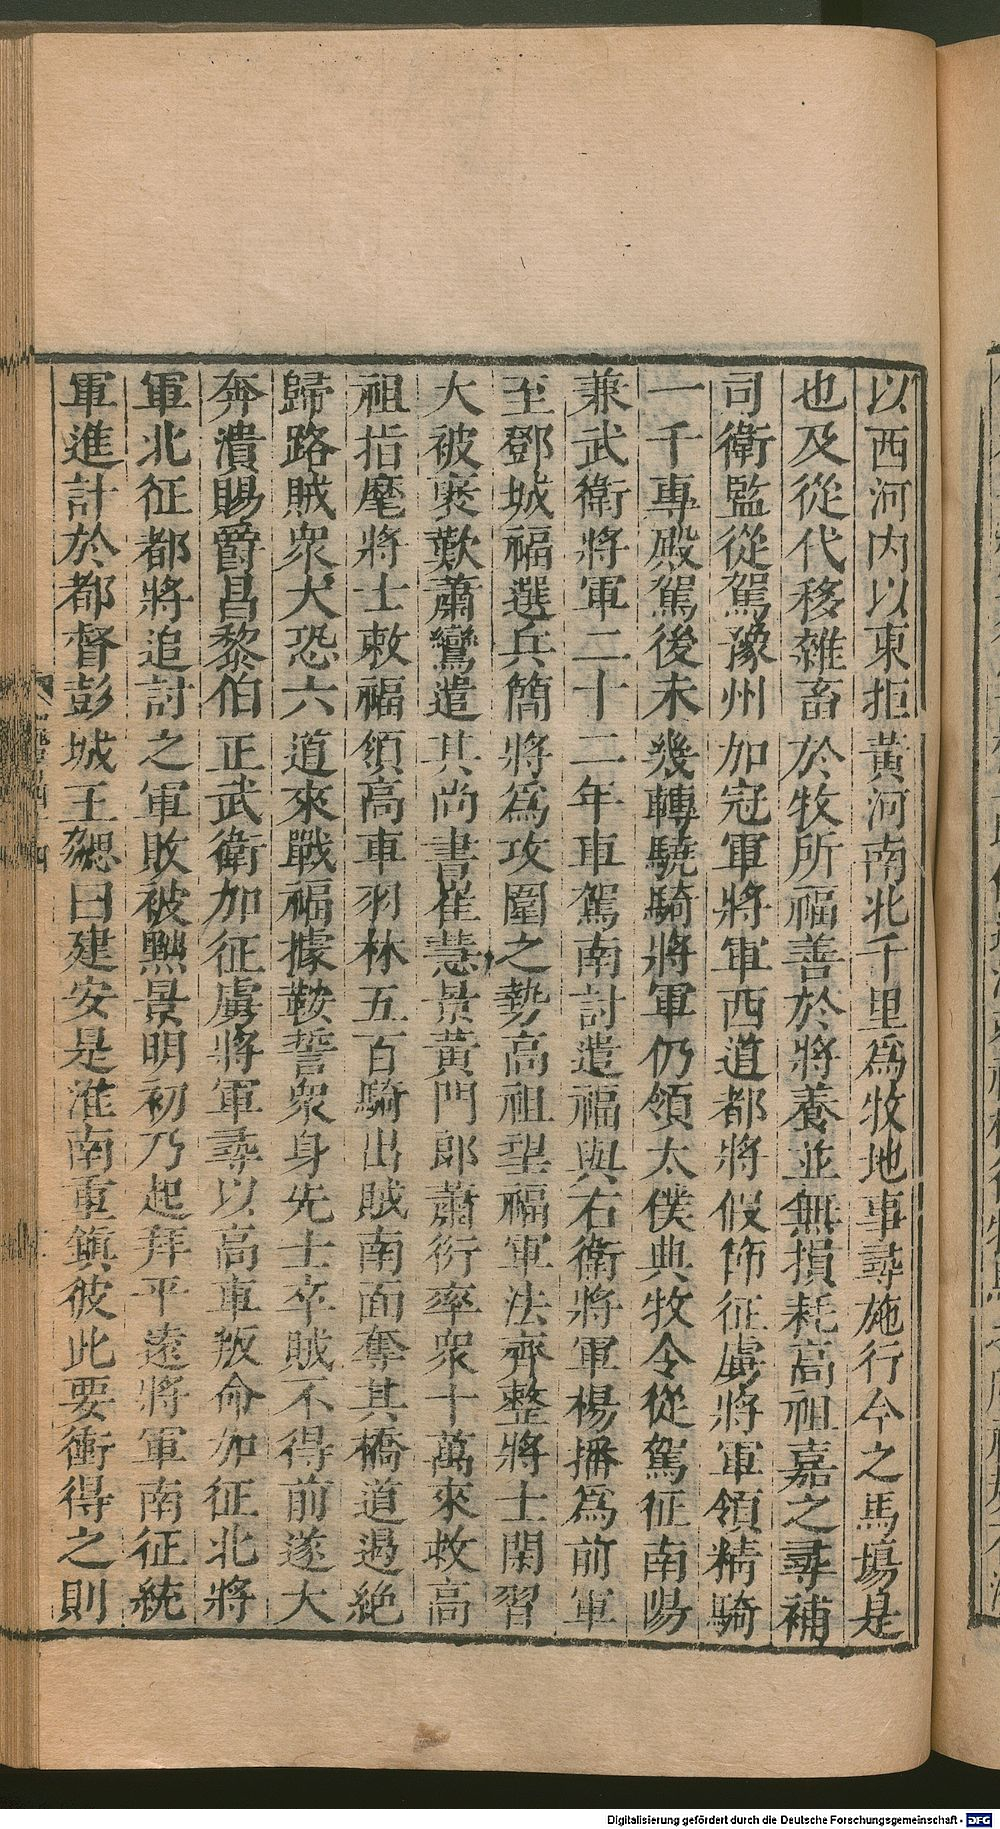 以西河内以東拒黃河南北千里爲牧地事尋施行今之馬塲是
也及從代移雜畜於牧所福善於將養並無損耗高祖嘉之尋補
司衛監從駕豫州加冠軍將軍西道都將假節征虜將軍領精騎
一千專殿駕後未幾轉驍騎將軍仍領太僕典牧令從駕征南陽
兼武衛將軍二十二年車駕南討遣福與右衛將軍楊播爲前軍
至鄧城福選兵簡將爲攻圍之勢高祖望福軍法齊整將士閑習
大被褒歎蕭鸞遣其尚書崔慧景黃門郎蕭衍率衆十萬來救高
祖指麾將士敕福領高車羽林五百騎出賊南面奪其橋道遏絶
歸路賊衆大恐六道來戰福據鞍誓衆身先士卒賊不得前遂大
奔潰賜爵昌黎伯正武衛加征虜將軍尋以高車叛命加征北將
軍北征都將追討之軍敗被黜景明初乃起拜平遠將軍南征統
軍進計於都督彭城王勰曰建安是淮南重鎭彼此要衝得之則
Digitalisierung gefördert durch die Deutsche Forschungsgemeinschaft - DFG